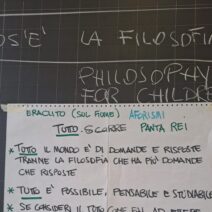 OS'È LA FILOSOFIA
PHILOSOPHY
FOR CHILDRE
ERACLITO (SUL FIUME) AFORISMI
TUTTO SCORRE PANTA REI
* TUTTO IL MONDO E' DI DOMANDE E RISPOSTE
TRAMITE LA FILOSOFIA CHE HA PIÙ DOMANDE
CHE RISPOSTE
* TUTTO È POSSIBILE, PENSABILE E STUDIABILE
* SE CONSIDERI IL TUTTO COME